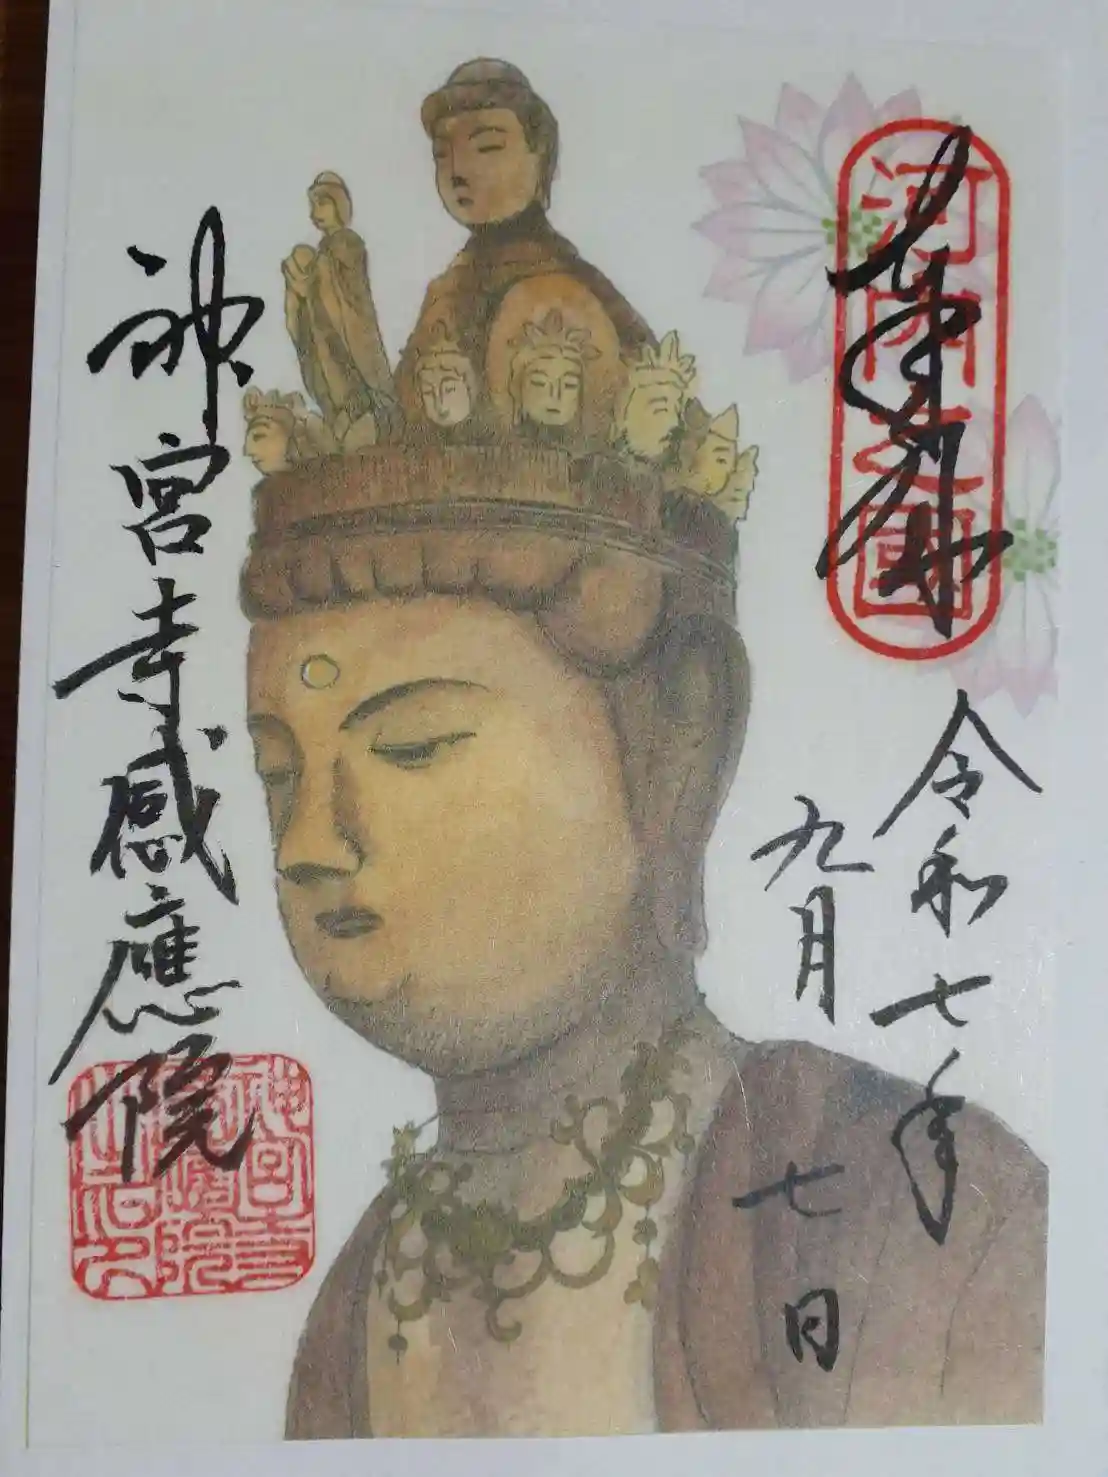 奉拝
河内之國
令和七年
九月
七日
神宮寺感應院